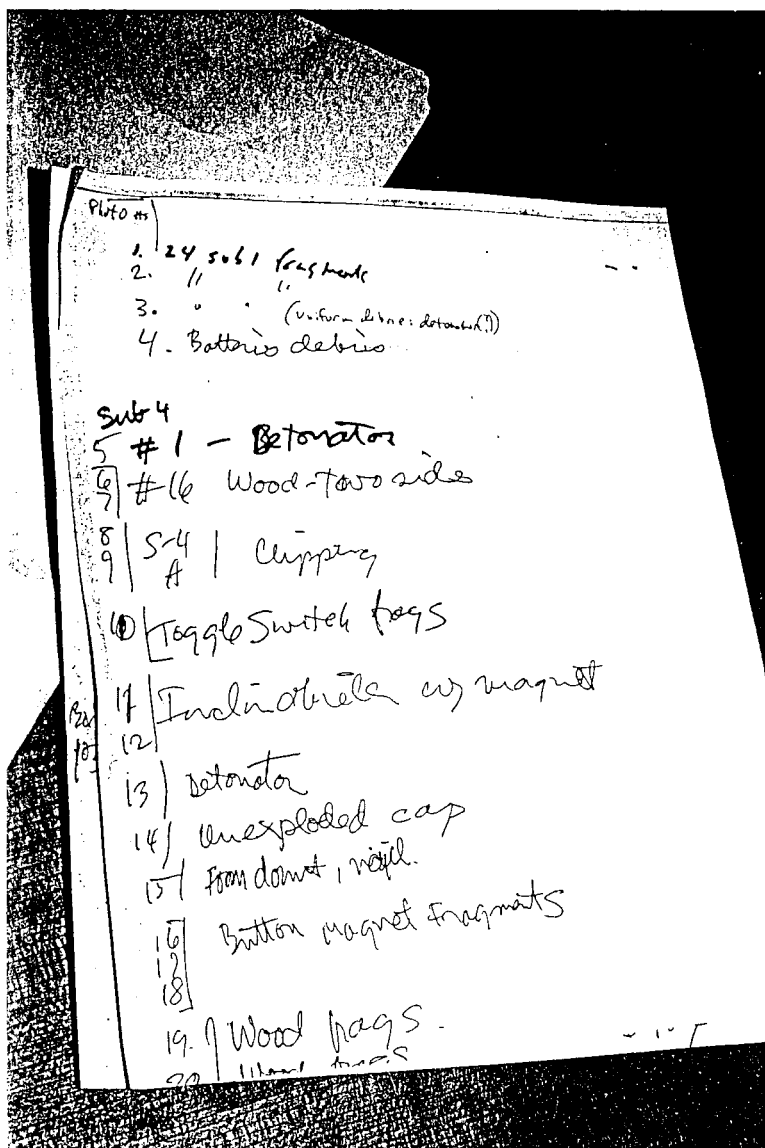 Photo #s
1. 24 sub 1 fragments
2. " "
3. " " (uniform debris: detonator(?))
4. Batteries debris
Sub 4
5 # 1 - Detonator
6 #16 Wood-two sides
7
8 S-4 Clipping
9 A
10 Toggle Switch frags
11 w/ magnet
12
13 Detonator
14 Unexploded cap
15
16 Button magnet Fragments
17
18
19. Wood frags.
20 frags